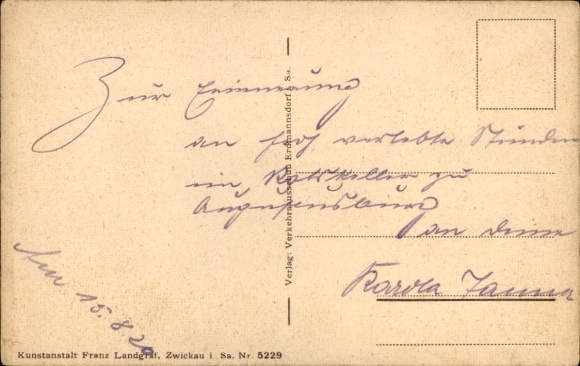 Zur Erinnerung
an froh verlebte Stunden
im Ratskeller zu
Augustusburg
an deine
Karola
Am 15.8.20
Verlag: Verkehrsausschuß Erdmannsdorf i. Sa.
Kunstanstalt Franz Landgraf, Zwickau i. Sa. Nr. 5229